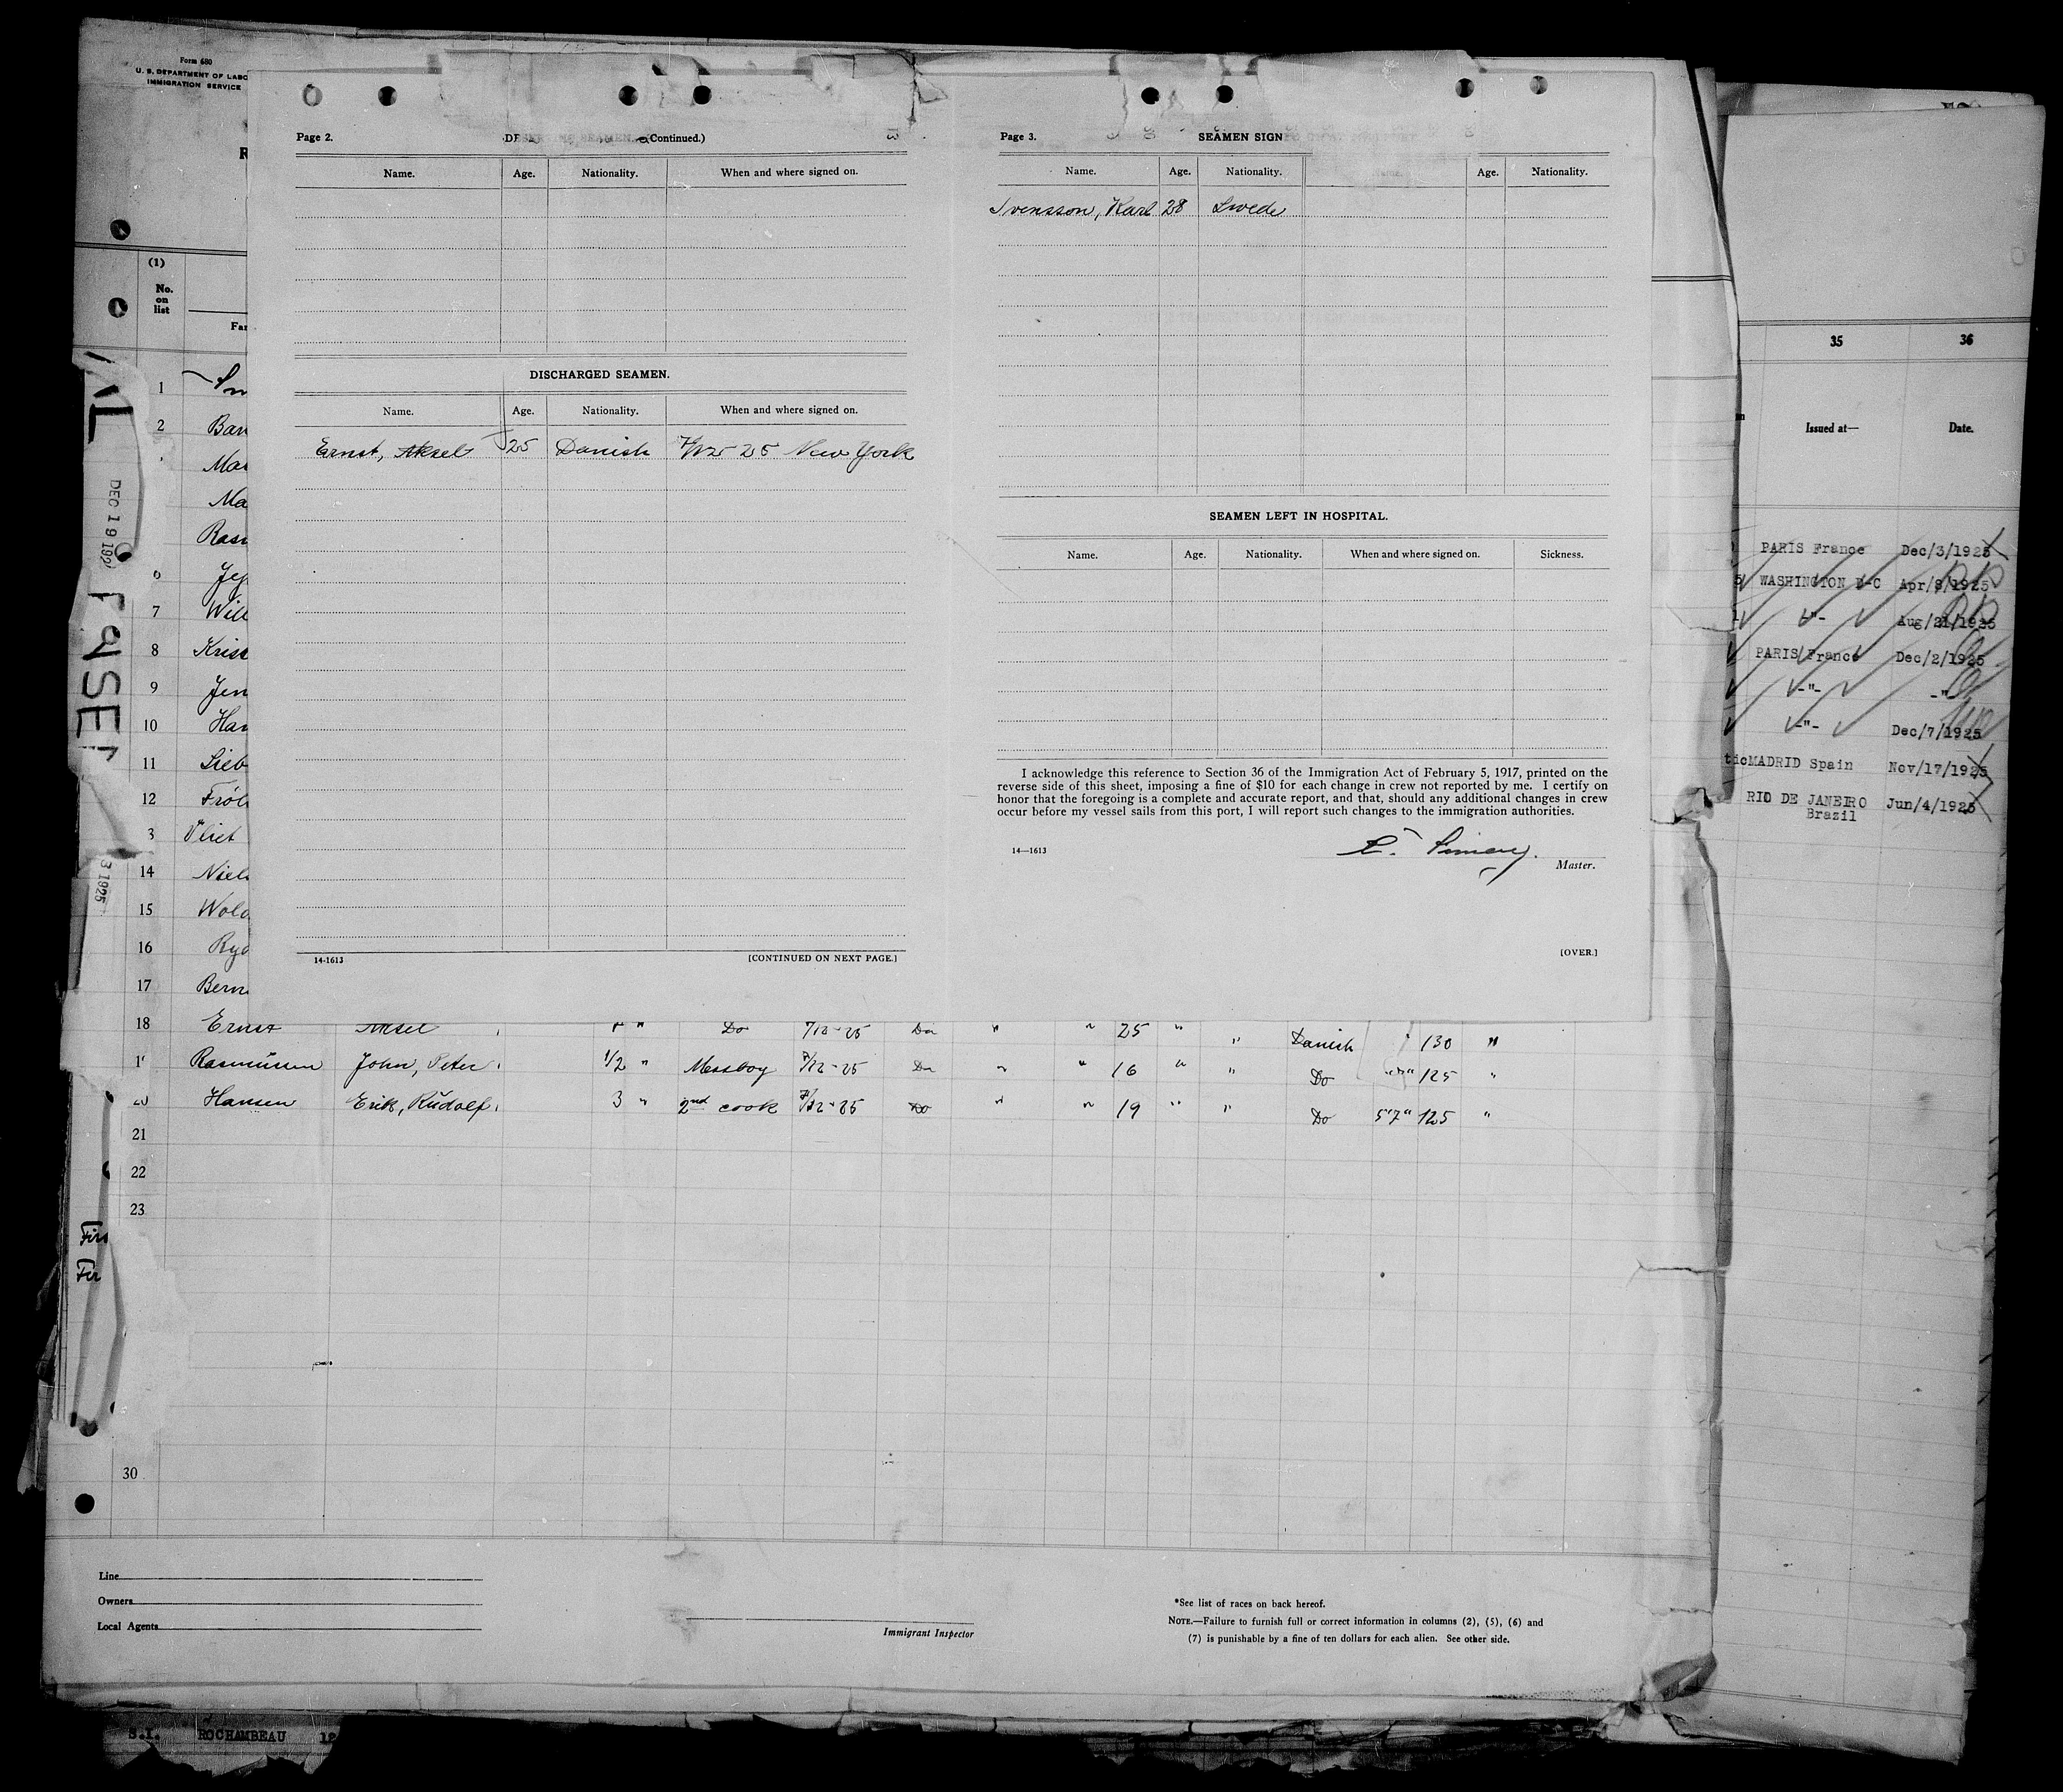 Form 680
U. S. DEPARTMENT OF LABO
IMMIGRATION SERVICE
(1)
No.
on
list
Fa
1
2 Ban
Mar
Ma
Rasm
Jep
7 Will
8 Krist
9 Jen
10 Han
11 Lieb
12 Fröh
3 Vliet
14 Niel
15 Wold
16 Ryd
17 Bern
DEC 19 192
3 1925
Page 2.
(Continued.)
Name. Age. Nationality. When and where signed on.
DISCHARGED SEAMEN.
Name. Age. Nationality. When and where signed on.
Ernst, Aksel 25 Danish 25 New York
14-1613 [CONTINUED ON NEXT PAGE.]
Page 3. SEAMEN SIGN
Name. Age. Nationality. Name. Age. Nationality.
Svensson, Karl 28 Swede
SEAMEN LEFT IN HOSPITAL.
Name. Age. Nationality. When and where signed on. Sickness.
I acknowledge this reference to Section 36 of the Immigration Act of February 5, 1917, printed on the
reverse side of this sheet, imposing a fine of $10 for each change in crew not reported by me. I certify on
honor that the foregoing is a complete and accurate report, and that, should any additional changes in crew
occur before my vessel sails from this port, I will report such changes to the immigration authorities.
14—1613
Master.
[OVER.]
18 Ernst Aksel " Do 7/12-25 Do " " 25 " " Danish 130 "
1 Rasmussen John, Peter 1/2 " Messboy 7/12-25 Do " " 16 " " Do 125 "
Hansen Erik, Rudolf 3 " 2nd cook 7/12-25 Do " " 19 " " Do 5"7" 125 "
21
22
23
30
Line
Owners
Local Agents
Immigrant Inspector
*See list of races on back hereof.
NOTE.—Failure to furnish full or correct information in columns (2), (5), (6) and
(7) is punishable by a fine of ten dollars for each alien. See other side.
35 36
Issued at— Date.
PARIS France Dec/3/1925
WASHINGTON D-C Apr/8/1925
-"- Aug/21/1925
PARIS France Dec/2/1925
-"- -"-
-"- Dec/7/1925
tic MADRID Spain Nov/17/1925
RIO DE JANEIRO Jun/4/1925
Brazil
S.I. ROCHAMBEAU 12